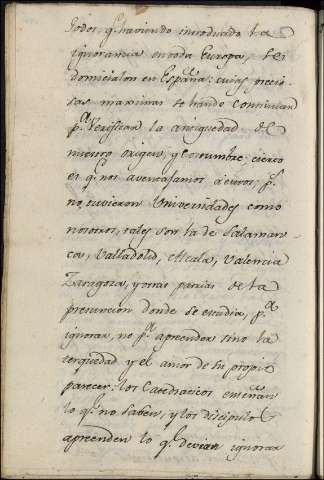 Godos, qᵉ haviendo introducido la
ignorancia en toda Europa, se
domiciliaron en España: cuias precio-
sas maximas se han de continuar
pᵃ verificar la antiguedad de
nuestro origen, y costumbre; cierto
es qᵉ nos aventajamos a otros; pˢ
no tuvieron Universidades como
nosotros, tales son la de Salaman-
ca, Valladolid, Alcala, Valencia
Zaragoza, y otras patrias de la
presuncion donde se estudia, pᵃ
ignorar, no pᵃ aprender sino la
terquedad y el amor de su propio
parecer: los Catedraticos enseñan
lo qᵉ no saben, y los discipulos
aprenden lo qᵉ devian ignorar